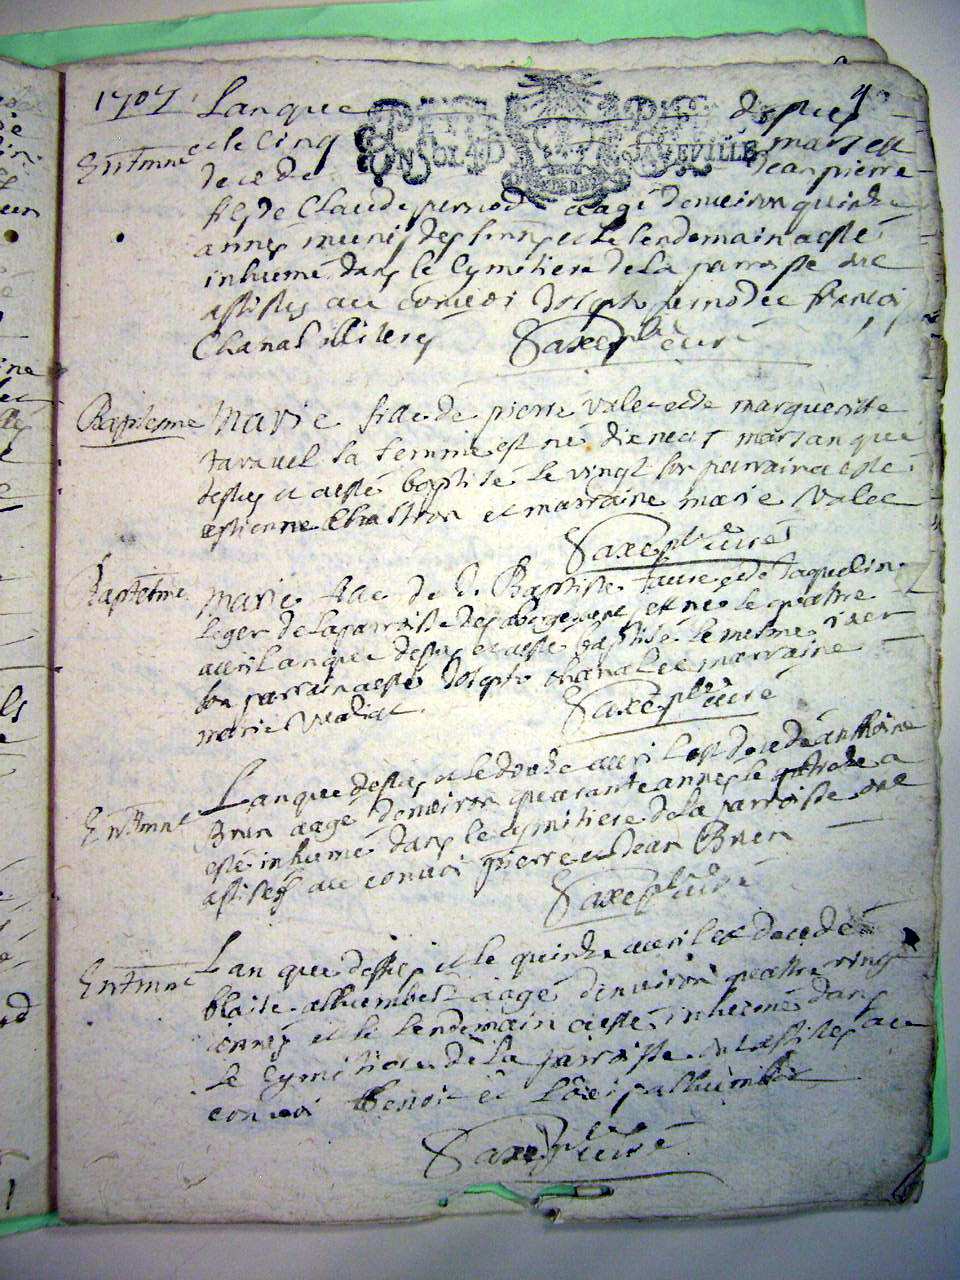 1707 Lanque dessus 4
et le cinq mars est
Enterrmt decede Jean pierre
fils de Claude pernod aagé denviron quinze
années munis des et le lendemain a esté
inhumé dans le cymetiere de la parroisse ont
assistes au convoi Joseph pernod et françoi
Chanal
Saxe pbr curé
Baptesme Marie fille de pierre valet et de margueritte
taravel sa femme est né dixneuf mars an que
dessus et a esté baptisé le vingt son parrain a esté
estienne et marraine marie Valet
Saxe pbr curé
Baptesme Marie fille de J. Baptiste faure et de Jaqueline
leger de la parroisse des est né le quattre
avril an que dessus et a esté baptisé le mesme iour
son parrain a esté Joseph Chanal et marraine
marie
Saxe pbr curé
Lan que dessus et le douze avril est decedé anthoine
Enterrmt Brun aagé denviron quarante annees le quatorze a
esté inhumé dans le cymitiere de la parroisse ont
assistes au convoi pierre et Jean Brun
Saxe pbr curé
Lan que dessus et le quinze avril est decedé
Enterrmt blaise alhumbert aagé denviron quattre vingt
années et le lendemain a esté inhumé dans
le cymitiere de la parroisse ont assistes au
convoi Benoit et Louis alhumbert
Saxe pbr curé